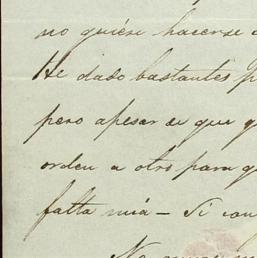 no quiére hacerse
He dado bastantes
pero apesar de que
orden a otro para
falta mia – Si
No